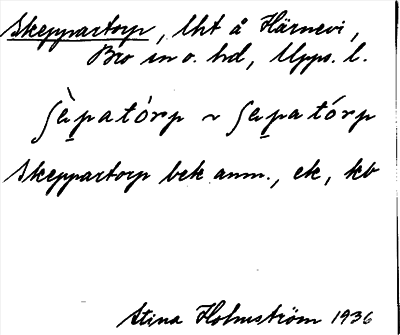 Skeppartorp, lht å Härnevi,
Bro sn o. hd, Upps. l.
ʃèpatórp ~ ʃepatórp
Skeppartorp bek. anm., ek, kb
Stina Holmström 1936